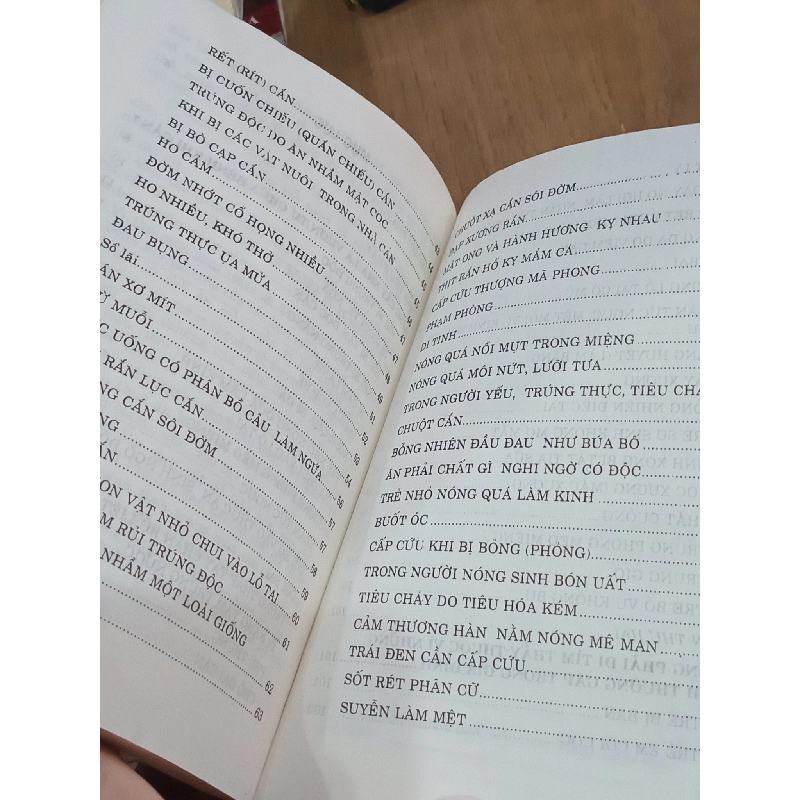 RẾT (RÍT) CẮN
BỊ CUỐN CHIẾU (QUẤN CHIẾU) CẮN
TRÚNG ĐỘC DO ĂN NHẦM MẬT CÓC
KHI BỊ CÁC VẬT NUÔI TRONG NHÀ CẮN
BỊ BÒ CẠP CẮN
HO CẢM
ĐỜM NHỚT CỔ HỌNG NHIỀU
HO NHIỀU, KHÓ THỞ
TRÚNG THỰC ỤA MỬA
ĐAU BỤNG
Sổ lãi
XƠ MÍT
MUỖI
UỐNG CÓ PHẤN BỒ CÂU LÀM NGỨA
RẮN LỤC CẮN
CẮN SÔI ĐỜM
VẬT NHỎ CHUI VÀO LỖ TAI 60
RỦI TRÚNG ĐỘC 61
NHẦM MỘT LOÀI GIỐNG
62
63
CHUỘT XẠ CẮN SÔI ĐỜM
ĐẠP XƯƠNG RẮN
MẬT ONG VÀ HÀNH HƯƠNG KỴ NHAU
THỊT RẮN HỔ KỴ MẮM CÁ
CẤP CỨU THƯỢNG MÃ PHONG
PHẠM PHÒNG
DI TINH
NÓNG QUÁ NỔI MỤT TRONG MIỆNG
NÓNG QUÁ MÔI NỨT, LƯỠI TƯA
TRONG NGƯỜI YẾU, TRÚNG THỰC, TIÊU CHẢ
CHUỘT CẮN
BỖNG NHIÊN ĐẦU ĐAU NHƯ BÚA BỔ
ĂN PHẢI CHẤT GÌ NGHI NGỜ CÓ ĐỘC
TRẺ NHỎ NÓNG QUÁ LÀM KINH
BUỐT ÓC
CẤP CỨU KHI BỊ BỎNG (PHỎNG)
TRONG NGƯỜI NÓNG SINH BỒN UẤT
TIÊU CHẢY DO TIÊU HÓA KÉM
CẢM THƯƠNG HÀN NẰM NÓNG MÊ MAN
TRÁI ĐEN CẦN CẤP CỨU
SỐT RÉT PHÂN CỮ
SUYỄN LÀM MỆT